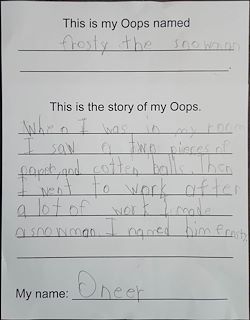 This is my Oops named
frosty the snowman
This is the story of my Oops.
When I was in my room
I saw a two pieces of
paper and cotten balls. Then
I went to work after
a lot of work I made
a snowman. I named him
My name: Oneer